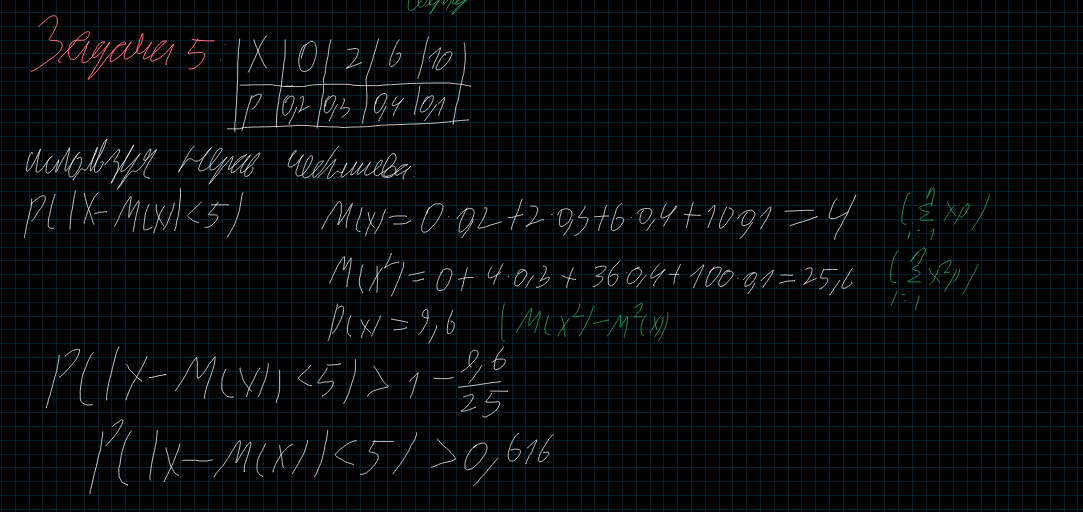 Задача 5:
| X | 0 | 2 | 6 | 10 |
| P | 0,2 | 0,3 | 0,4 | 0,1 |
используя нерав чебышева:
P(|X-M(X)|<5) M(X)=0·0,2+2·0,3+6·0,4+10·0,1=4 (∑ⁿᵢ₌₁ xp)
M(X²)=0+4·0,3+36·0,4+100·0,1=25,6 (∑ⁿᵢ₌₁ x²p)
D(X)=9,6 (M(X²)-M²(X))
P(|X-M(X)|<5)>1-9,6/25
P(|X-M(X)|<5)>0,616